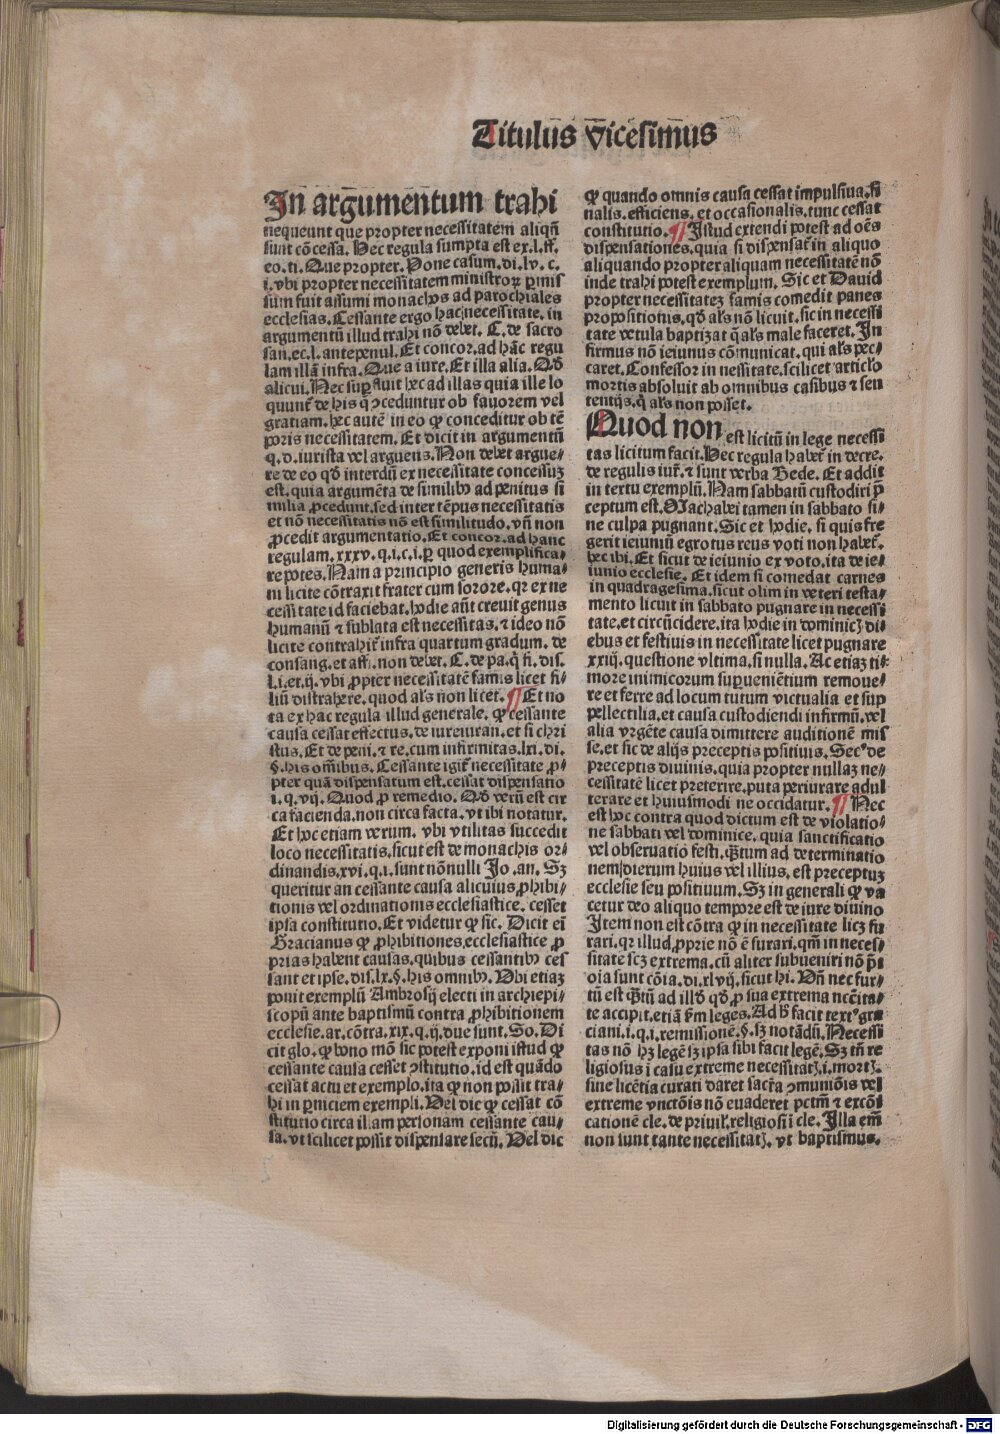 Titulus vicesimus
In argumentum trahi
nequeunt que propter necessitatem aliqñ
sunt cõcessa. Hec regula sumpta est ex.l.ff.
eo.ti. Que propter. Pone casum.di.lv.c.
i.vbi propter necessitatem ministroꝝ ꝑmis
sum fuit assumi monachos ad parochiales
ecclesias. Cessante ergo hac necessitate, in
argumentũ illud trahi nõ debet. C. de sacro
san.ec.l.antepenul. Et concor.ad hãc regu
lam illã infra. Que a iure. Et illa alia. Qđ
alicui. Nec supfluit hec ad illas quia ille lo
quunt̃ de his q̃ ꝯceduntur ob fauorem vel
gratiam. hec autẽ in eo ꝙ conceditur ob tẽ
poris necessitatem. Et dicit in argumentũ
q.d. iurista vel arguens. Non debet argue⸗
re de eo qđ interdũ ex necessitate concessuꝫ
est. quia argumẽta de similibꝰ ad penitus si
milia ꝓcedunt. sed inter tẽpus necessitatis
et nõ necessitatis nõ est similitudo. vñ non
ꝓcedit argumentatio. Et concor.ad hanc
regulam.xxxv.q.i.c.i. ꝑ quod exemplifica⸗
re potes. Nam a principio generis huma⸗
ni licite cõtraxit frater cum sorore. qꝛ ex ne
cessitate id faciebat. hodie aũt creuit genus
humanũ ⁊ sublata est necessitas. ⁊ ideo nõ
licite contrahit̃ infra quartum gradum. de
consang. et affi. non debet. C. de pa. q̃ fi. dis.
l.i. et.ij. vbi ꝓpter necessitatẽ famis licet fi⸗
liũ distrahere. quod als non licet. ¶ Et no
ta ex hac regula illud generale. ꝙ cessante
causa cessat effectus. de iureiuran. et si chri
stus. Et de peni. ⁊ re. cum infirmitas. lxi. di.
§. his om̃ibus. Cessante igit̃ necessitate ꝓ⸗
pter quã dispensatum est. cessat dispensatio
i. q. vij. Quod ꝓ remedio. Qđ verũ est cir
ca facienda. non circa facta. vt ibi notatur.
Et hoc etiam verum. vbi vtilitas succedit
loco necessitatis. sicut est de monachis or⸗
dinandis. xvi. q. i. sunt nõnulli Jo. an. Sꝫ
queritur an cessante causa alicuius ꝓhibi⸗
tionis vel ordinationis ecclesiastice. cesset
ipsa constitutio. Et videtur ꝙ sic. Dicit eĩ
Gracianus ꝙ ꝓhibitiones ecclesiastice ꝓ
prias habent causas. quibus cessantibꝰ ces
sant et ipse. dis. lx. §. his omnibꝰ. Vbi etiaꝫ
ponit exemplũ Ambrosij electi in archiepi⸗
scopũ ante baptismũ contra ꝓhibitionem
ecclesie. ar. cõtra. xix. q. ij. due sunt. So. Di
cit glo. ꝙ bono mõ sic potest exponi istud ꝙ
cessante causa cesset ꝯstitutio. id est quãdo
cessat actu et exemplo. ita ꝙ non possit tra⸗
hi in ꝑniciem exempli. Vel dic ꝙ cessat cõ
stitutio circa illam personam cessante cau⸗
sa. vt scilicet possit dispensare secũ. Vel dic
ꝙ quando omnis causa cessat impulsiua. fi
nalis. efficiens. et occasionalis. tunc cessat
constitutio. ¶ Istud extendi potest ad oẽs
dispensationes. quia si dispensat̃ in aliquo
aliquando propter aliquam necessitatẽ nõ
inde trahi potest exemplum. Sic et Dauid
propter necessitateꝫ famis comedit panes
propositiotus. qđ als nõ licuit. sic in necessi
tate vetula baptizat q̃ als male faceret. In
firmus nõ ieiunus cõmunicat. qui als pec⸗
caret. Confessor in nessitate. scilicet articlo
mortis absoluit ab omnibus casibus ⁊ sen
tentijs. q̃ als non posset.
Quod non est licitũ in lege necessi
tas licitum facit. Hec regula habet̃ in decre.
de regulis iur̃. ⁊ sunt verba Bede. Et addit
in textu exemplũ. Nam sabbatũ custodiri p̃
ceptum est. Machabei tamen in sabbato si⸗
ne culpa pugnant. Sic et hodie. si quis fre
gerit ieiuniũ egrotus reus voti non habet̃.
hec ibi. Et sicut de ieiunio ex voto. ita de ie⸗
iunio ecclesie. Et idem si comedat carnes
in quadragesima. sicut olim in veteri testa⸗
mento licuit in sabbato pugnare in necessi
tate. et circũcidere. ita hodie in dominicꝭ di⸗
ebus et festiuis in necessitate licet pugnare
xxiij. questione vltima. si nulla. Ac etiaꝫ ti⸗
more inimicorum supueniẽtium remoue⸗
re et ferre ad locum tutum victualia et sup
pellectilia. et causa custodiendi infirmũ. vel
alia vrgẽte causa dimittere auditionẽ mis
se. et sic de alijs preceptis positiuis. Secꝰ de
preceptis diuinis. quia propter nullaꝫ ne⸗
cessitatẽ licet preterire. puta periurare adul
terare et huiusmodi ne occidatur. ¶ Nec
est hoc contra quod dictum est de violatio⸗
ne sabbati vel dominice. quia sanctificatio
vel obseruatio festi. q̃tum ad determinatio
nem dierum huius vel illius. est preceptuꝫ
ecclesie seu positiuum. Sꝫ in generali ꝙ va
cetur deo aliquo tempore est de iure diuino
Item non est cõtra ꝙ in necessitate licꝫ fu
rari. qꝛ illud ꝓprie nõ ẽ furari. qm̃ in neces⸗
sitate scꝫ extrema. cũ aliter subueniri nõ p̃t
oĩa sunt cõia. di. xlvij. sicut hi. Vñ nec fur⸗
tũ est q̃tũ ad illđ qđ ꝓ sua extrema ncẽita⸗
te accipit. etiã fm leges. Ad h̃ facit textꝰ gra
ciani. i. q. i. remissionẽ. §. sꝫ notãdũ. Necessi
tas nõ hꝫ legẽ sꝫ ipsa sibi facit legẽ. Sꝫ tñ re
ligiosus ĩ casu extreme necessitatꝭ. i. mortꝭ.
sine licẽtia curati daret sacr̃a ꝯmuniõis vel
extreme vnctõis nõ euaderet pctm̃ ⁊ excõi
cationẽ cle. de priuil. religiosi ĩ cle. Illa em̃
non sunt tante necessitatꝭ. vt baptismus.
Digitalisierung gefördert durch die Deutsche Forschungsgemeinschaft - DFG